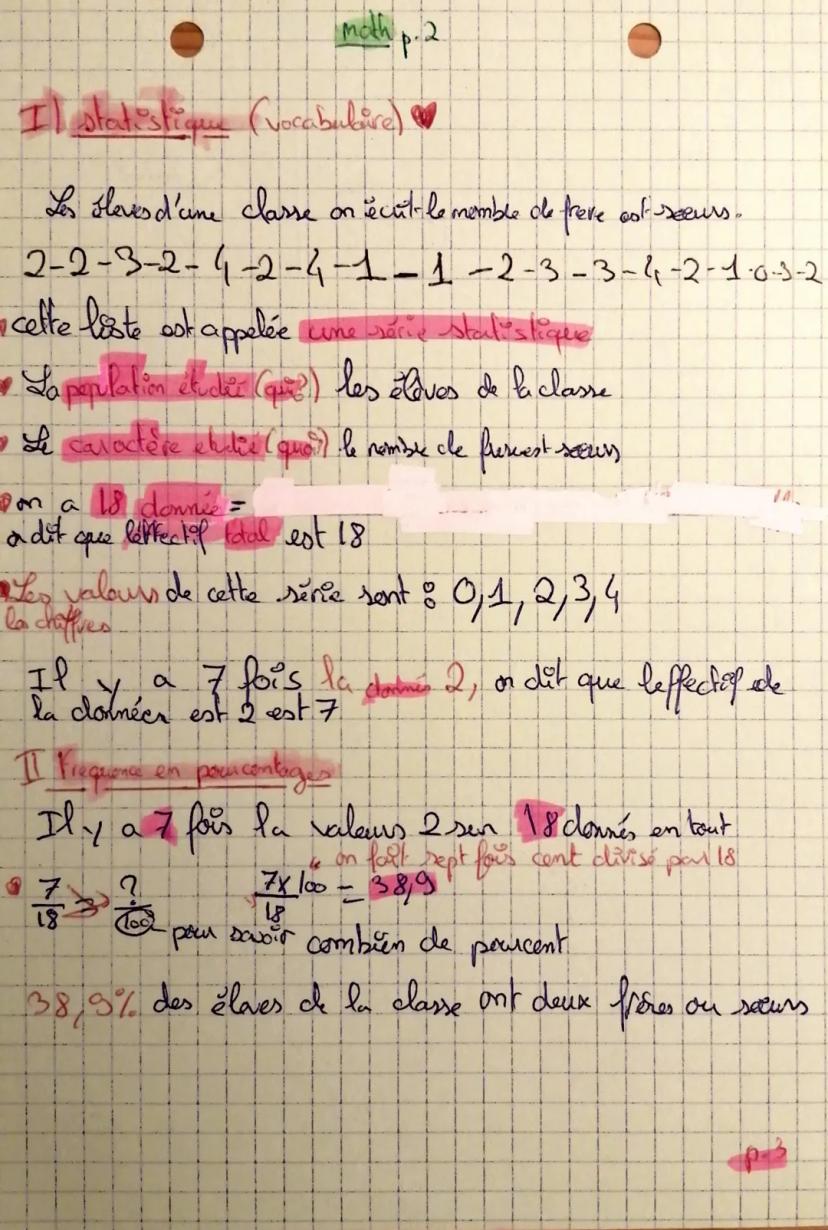 math p.2
I) statistique (vocabulaire) ♥
Les éleves d'une classe on écrit le nombre de frere est sœurs.
2-2-3-2-4-2-4-1-1-2-3-3-4-2-1-0-3-2
cette liste est appelée une série statistique
La population étudié (qui?) les élèves de la classe
Le caractère etudié (quoi?) le nombre de frere est sœurs
on a 18 donnée =
on dit que l'effectif total est 18
Les valeurs de cette série sont : 0, 1, 2, 3, 4
la chiffres
Il y a 7 fois la donnés 2, on dit que l'effectif de
la donnéer est 2 est 7
II Frequence en pourcentages
Il y a 7 fois la valeurs 2 sur 18 donnés en tout
" on fait sept fois cent divisé par 18
7/18 = ?/100 7x100/18 = 38,9
pour savoir combien de pourcent
38,9% des élèves de la classe ont deux frères ou sœurs
p-3